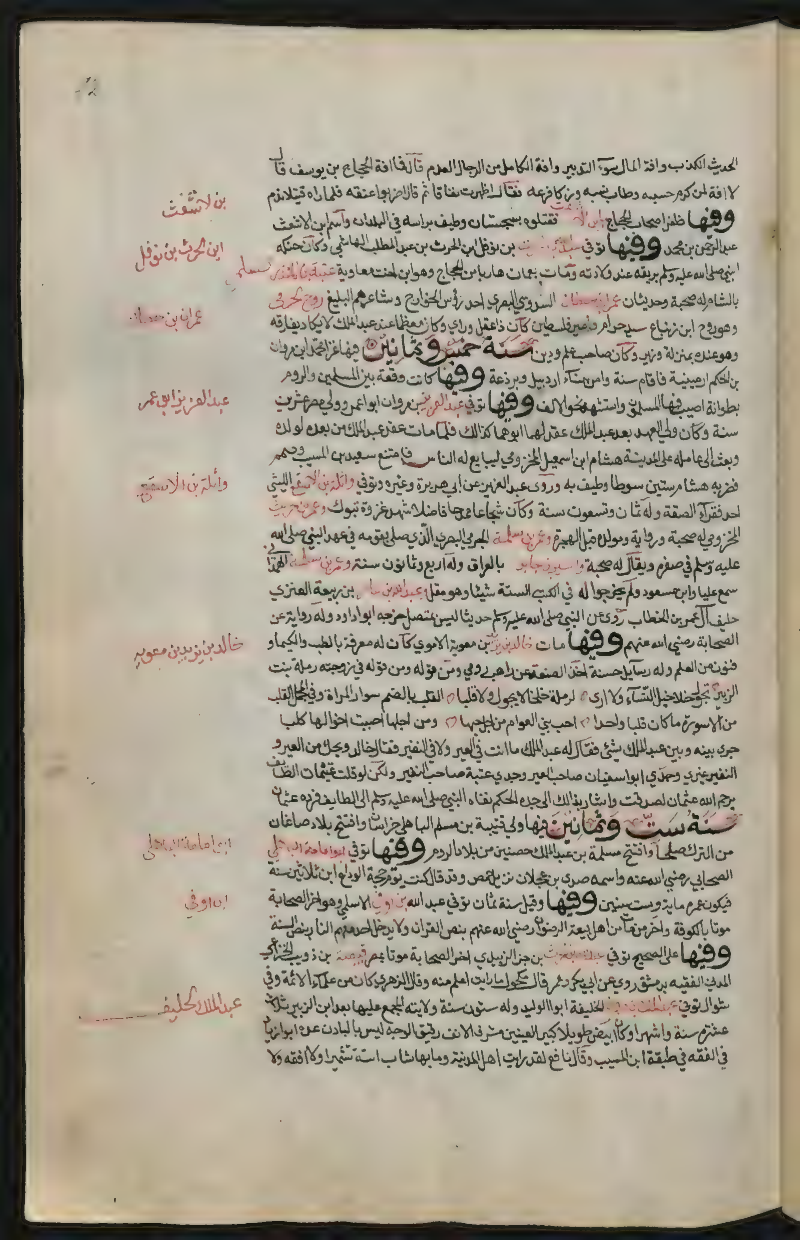 الحديث الكذب وافة المال سوء التدبير وافة الكامل من الرجال العدم قال فما افة الحجاج بن يوسف قال
لا افة لمن كرم حسبه وطاب نسبه وزكا فرعه فقال اظهرت نفاقا ثم قال اضربوا عنقه فلما راه قتيلا ندم
وفيها ظفر اصحاب الحجاج بابن الاشعث فقتلوه بسجستان وطيف براسه في البلدان واسم ابن الاشعث
بن الاشعث
عبد الرحمن بن محمد وفيها توفي عبد الله بن نوفل بن الحرث بن عبد المطلب الهاشمي وكان حنكه
ابن الحرث بن نوفل
النبي صلى الله عليه وسلم بريقه عند ولادته ومات بعمان هاربا من الحجاج وهو ابن اخت معاوية عتبة بن المنذر السلمي
بالشام له صحبة وحديثان عمران بن حطان السدوسي البصري احد رؤس الخوارج وشاعرهم البليغ روح
عمران بن حطان
وهو روح ابن زنباع سيد جذام وامير فلسطين كان ذا عقل وراي وكان معظما عند عبد الملك لا يكاد يفارقه
وهو عنده بمنزلة وزير وكان صاحب علم ودين سنة خمس وثمانين فيها غزا محمد ابن مروان
بن الحكم ارمينية فاقام سنة وامر ببناء اردبيل وبرذعة وفيها كانت وقعة بين المسلمين والروم
بطوانة اصيب فيها المسلمون واستشهد نحو الالف وفيها توفي عبد العزيز بن مروان ابو
عبد العزيز ابو عمر
سنة وكان ولي العهد بعد عبد الملك عقد لهما ابوهما كذالك فلما مات عقد عبد الملك من بعده لولده
وبعث الى عامله على المدينة هشام ابن اسمعيل المخزومي ليبايع له الناس فامتنع سعيد بن المسيب وصمم
فضربه هشام ستين سوطا وطيف به وروى عبد العزيز عن ابي هريرة وغيره وتوفي واثلة بن الاسقع الليثي
واثلة بن الاسقع
احد فقراء الصفة وله ثمان وتسعون سنة وكان شجاعا فاضلا شهد غزوة تبوك وعمرو بن حريث
المخزومي له صحبة ورواية ومولده قبل الهجرة وعمرو بن سلمة الجرمي البصري الذي صلى بقومه في عهد النبي صلى الله
عليه وسلم في صغره ويقال له صحبة بالعراق وله اربع وثمانون سنة وعمرو بن سلمة
سمع عليا وابن مسعود ولم يخرجوا له في الكتب الستة شيئا وهو مقل وعبد الله بن عامر بن ربيعة العنزي
حليف آل عمر بن الخطاب روى عن النبي صلى الله عليه وسلم حديثا ليس بمتصل خرجه ابو داود وله رواية عن
الصحابة رضي الله عنهم وفيها مات خالد بن يزيد بن معوية الاموي كان له معرفة بالطب والكيميا و
خالد بن يزيد بن معويه
فنون من العلم وله رسايل حسنة اخذ الصنعة عن راهب رومي ومن قوله في زوجته رملة بنت
الزبير تجول خلاخيل النساء ولا ارى لرملة خلخالا يجول ولا قلبا القلب بالضم سوار المراة
من الاسورة ما كان قلبا واحدا احب بني العوام من اجلها ومن اجلها احببت اخوالها كلبا
جرى بينه وبين عبد الملك شئ فقال له عبد الملك ما انت في العير ولا في النفير فقال خالد ويحك من العير و
النفير غيري وجدي ابو سفيان صاحب العير وجدي عتبة صاحب النفير ولكن لو قلت غنيمات الطايف
يرحم الله عثمان لصدقت واشار بذالك الى جده الحكم نفاه النبي صلى الله عليه وسلم الى الطايف فرده عثمان
سنة ست وثمانين فيها ولي قتيبة بن مسلم الباهلي خراسان وافتتح بلاد صاغان
من الترك صلحا وافتتح مسلمة بن عبد الملك حصنين من بلاد الروم وفيها توفي ابو امامة الباهلي
ابو امامة الباهلي
الصحابي رضي الله عنه واسمه صدي بن عجلان نزيل حمص وقد قال كنت يوم حجة الوداع ابن ثلاثين سنة
فيكون عمره ماية وست سنين وفيها وقيل سنة ثمان توفي عبد الله بن اوفى الاسلمي وهو اخر الصحابة
ابن اوفي
موتا بالكوفة واخر من مات من اهل بيعة الرضوان رضي الله عنهم بنص القران ولا يدخل احد منهم النار بنص السنة
وفيها على الصحيح توفي عبد الله بن الحرث بن جزء الزبيدي اخر الصحابة موتا بمصر قبيصة بن ذويب الخزاعي
المدني الفقيه بدمشق روى عن ابي بكر وعمر قال مكحول ما رايت اعلم منه وقال الزهري كان من علماء الائمة وفي
شوال توفي عبد الملك الخليفة ابو الوليد وله ستون سنة ولايته المجمع عليها بعد ابن الزبير ثلاث
عبد الملك الخليفه
عشرة سنة واشهرا وكان ابيض طويلا كبير العينين مشرف الانف رقيق الوجه ليس بالبادن عده ابو الزناد
في الفقه في طبقة ابن المسيب وقال نافع لقد رايت اهل المدينة وما بها شاب اشد تشميرا ولا افقه ولا